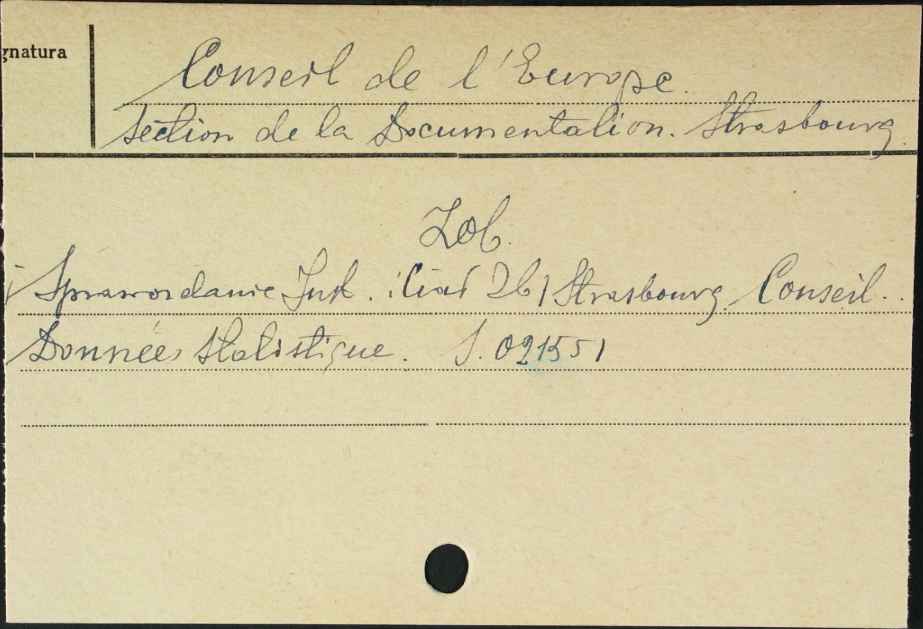 gnatura
Conseil de l'Europe.
Section de la Documentation. Strasbourg.
Zob.
Sprawozdanie Inst. i Ciał Zb / Strasbourg Conseil..
Données Statistique. S. 021551